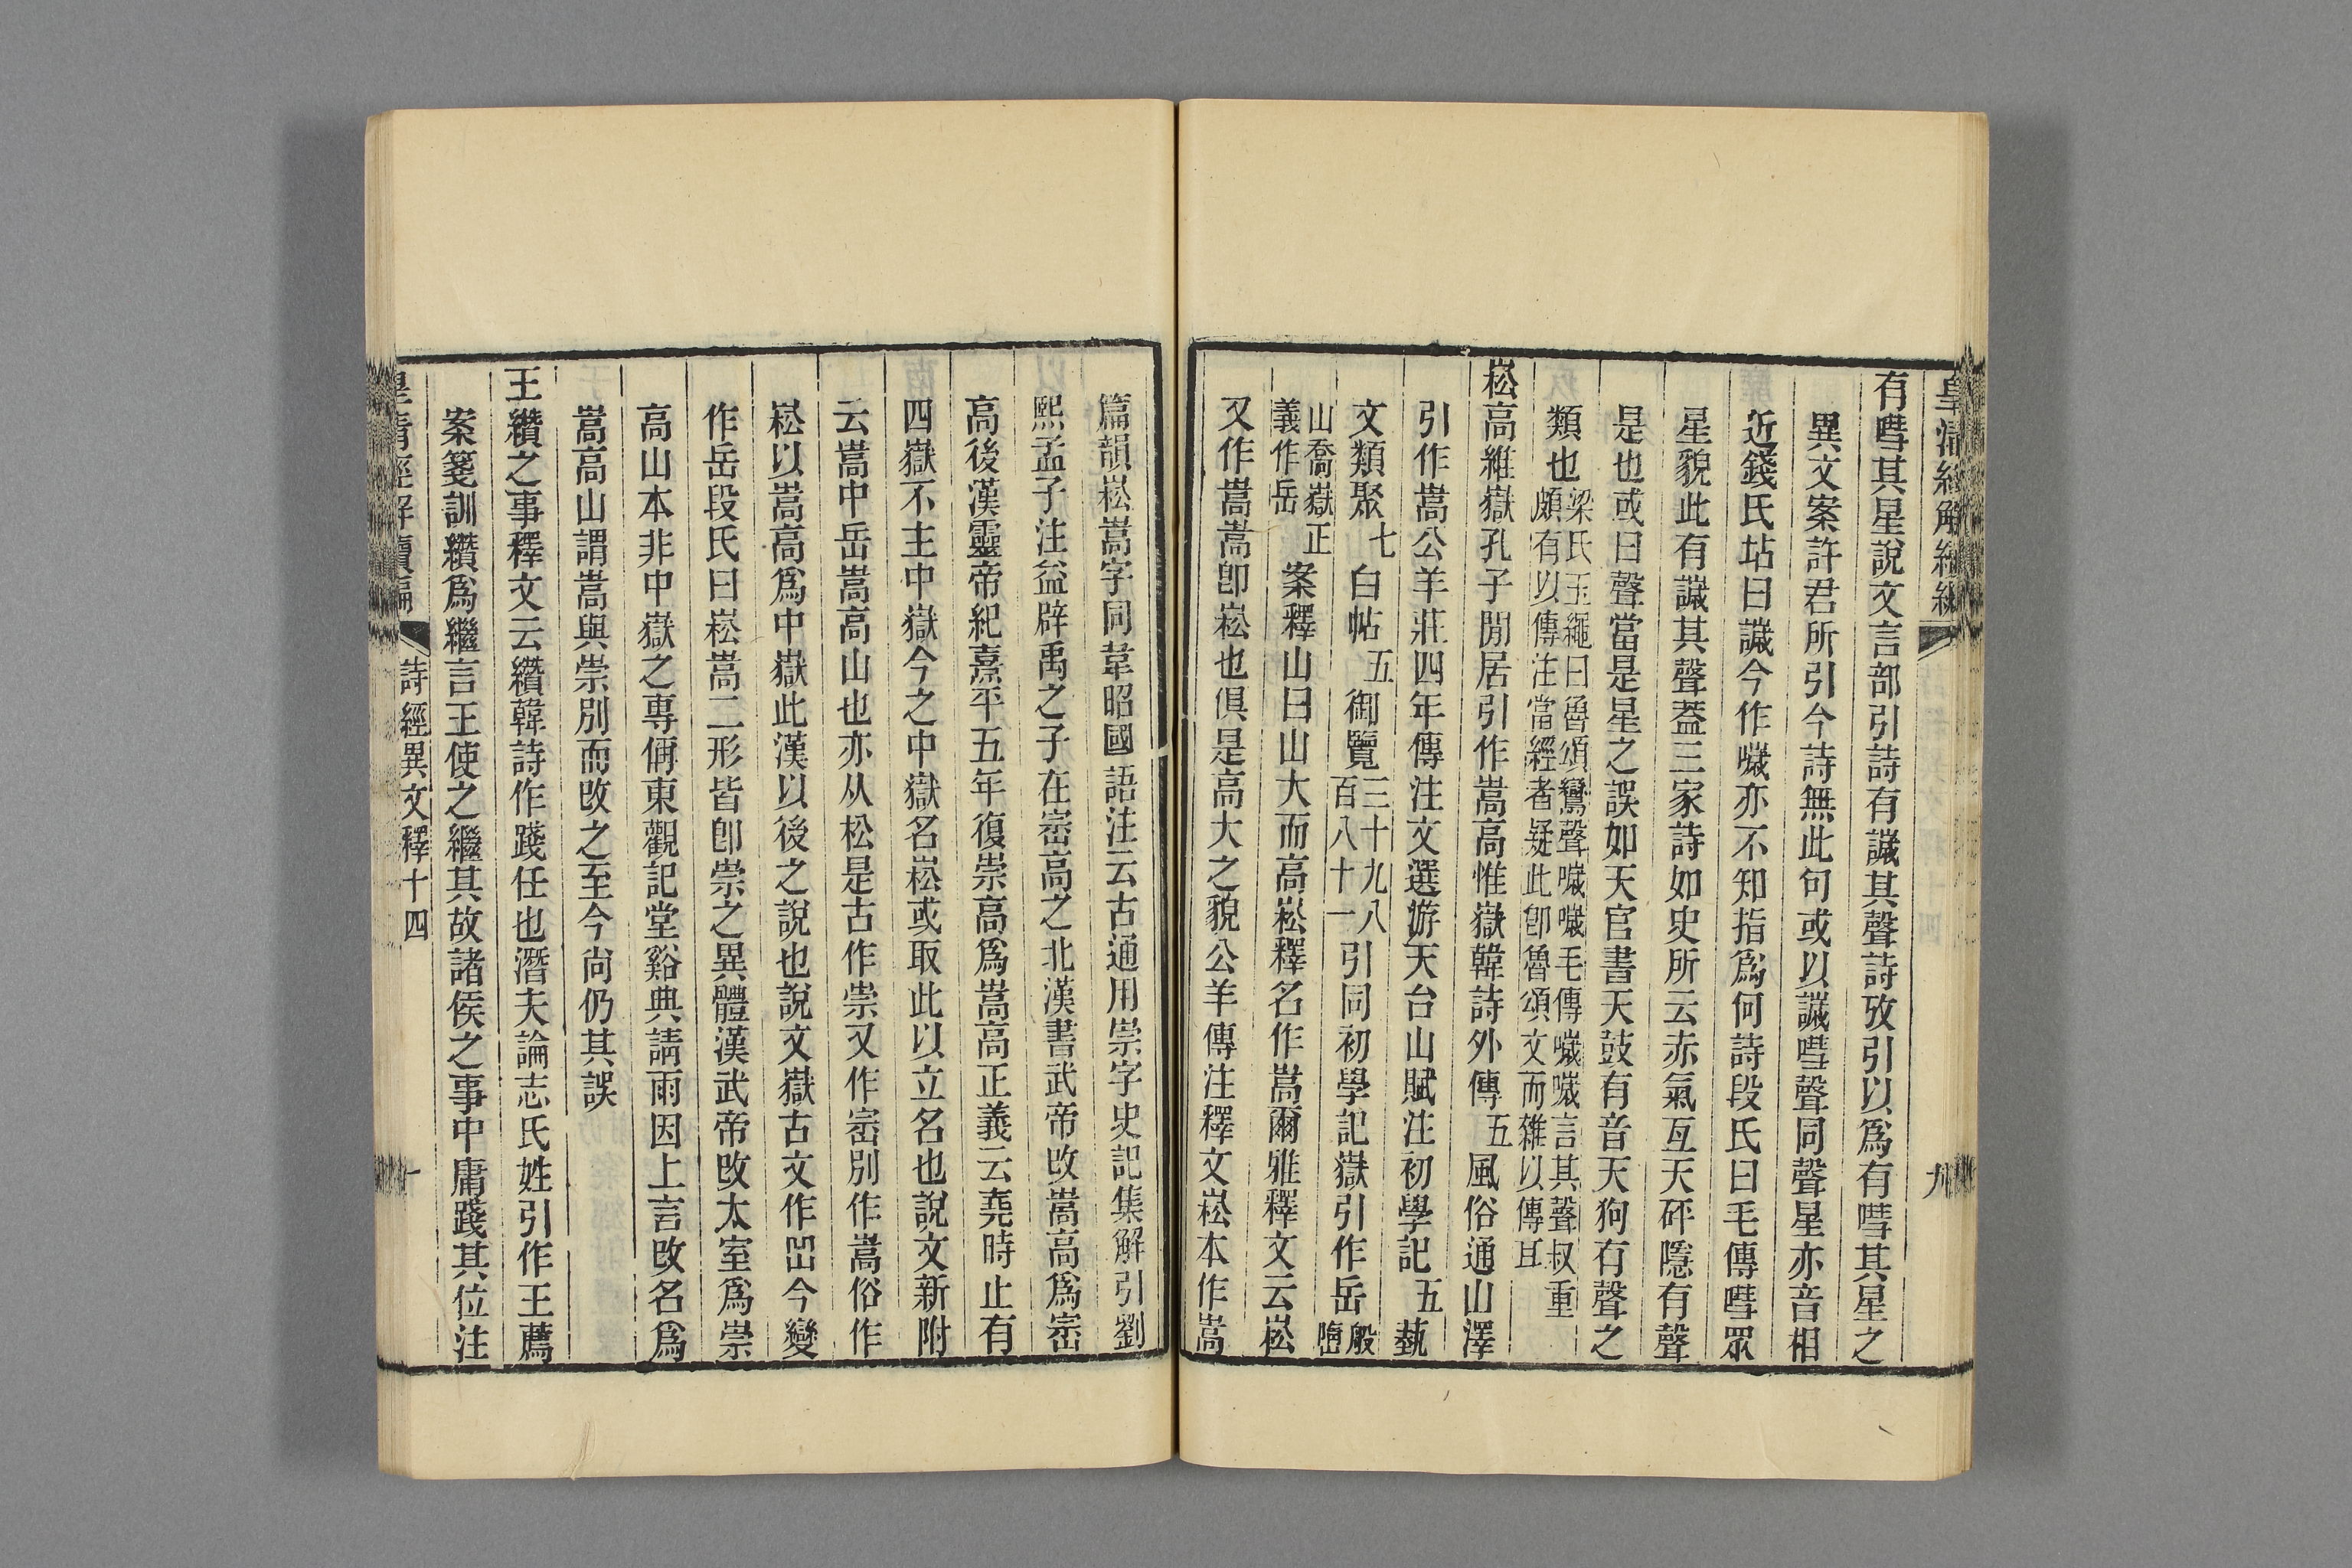 有嘒其星說文言部引詩有䜋其聲詩攷引以爲有嘒其星之
異文案許君所引今詩無此句或以䜋嘒聲同聲星亦音相
近錢氏坫曰䜋今作噦亦不知指爲何詩段氏曰毛傳嘒眾
星貌此有䜋其聲葢三家詩如史所云赤氣亙天砰隱有聲
是也或曰聲當是星之誤如天官書天鼓有音天狗有聲之
類也梁氏玉繩曰魯頌鸞聲噦噦毛傳噦噦言其聲叔重
頗有以傳注當經者疑此卽魯頌文而雜以傳耳
崧高維嶽孔子閒居引作嵩高惟嶽韓詩外傳五風俗通山澤
引作嵩公羊莊四年傳注文選游天台山賦注初學記五藝
文類聚七白帖五御覽三十九八百八十一引同初學記嶽引作岳般墮
山喬嶽正義作岳案釋山曰山大而高崧釋名作嵩爾雅釋文云崧
又作嵩嵩卽崧也俱是高大之貌公羊傳注釋文崧本作嵩
九
篇韻崧嵩字同韋昭國語注云古通用崇字史記集解引劉
熙孟子注益辟禹之子在崈高之北漢書武帝改嵩高爲崈
高後漢靈帝紀熹平五年復崇高爲嵩高正義云堯時止有
四嶽不主中嶽今之中嶽名崧或取此以立名也說文新附
云嵩中岳嵩高山也亦从松是古作崇又作崈別作嵩俗作
崧以嵩高爲中嶽此漢以後之說也說文嶽古文作𡶳今變
作岳段氏曰崧嵩二形皆卽崇之異體漢武帝改太室爲崇
高山本非中嶽之專偁東觀記堂谿典請雨因上言改名爲
嵩高山謂嵩與崇別而改之至今尙仍其誤
王纘之事釋文云纘韓詩作踐任也潛夫論志氏姓引作王薦
案箋訓纘爲繼言王使之繼其故諸侯之事中庸踐其位注
詩經異文釋十四
十